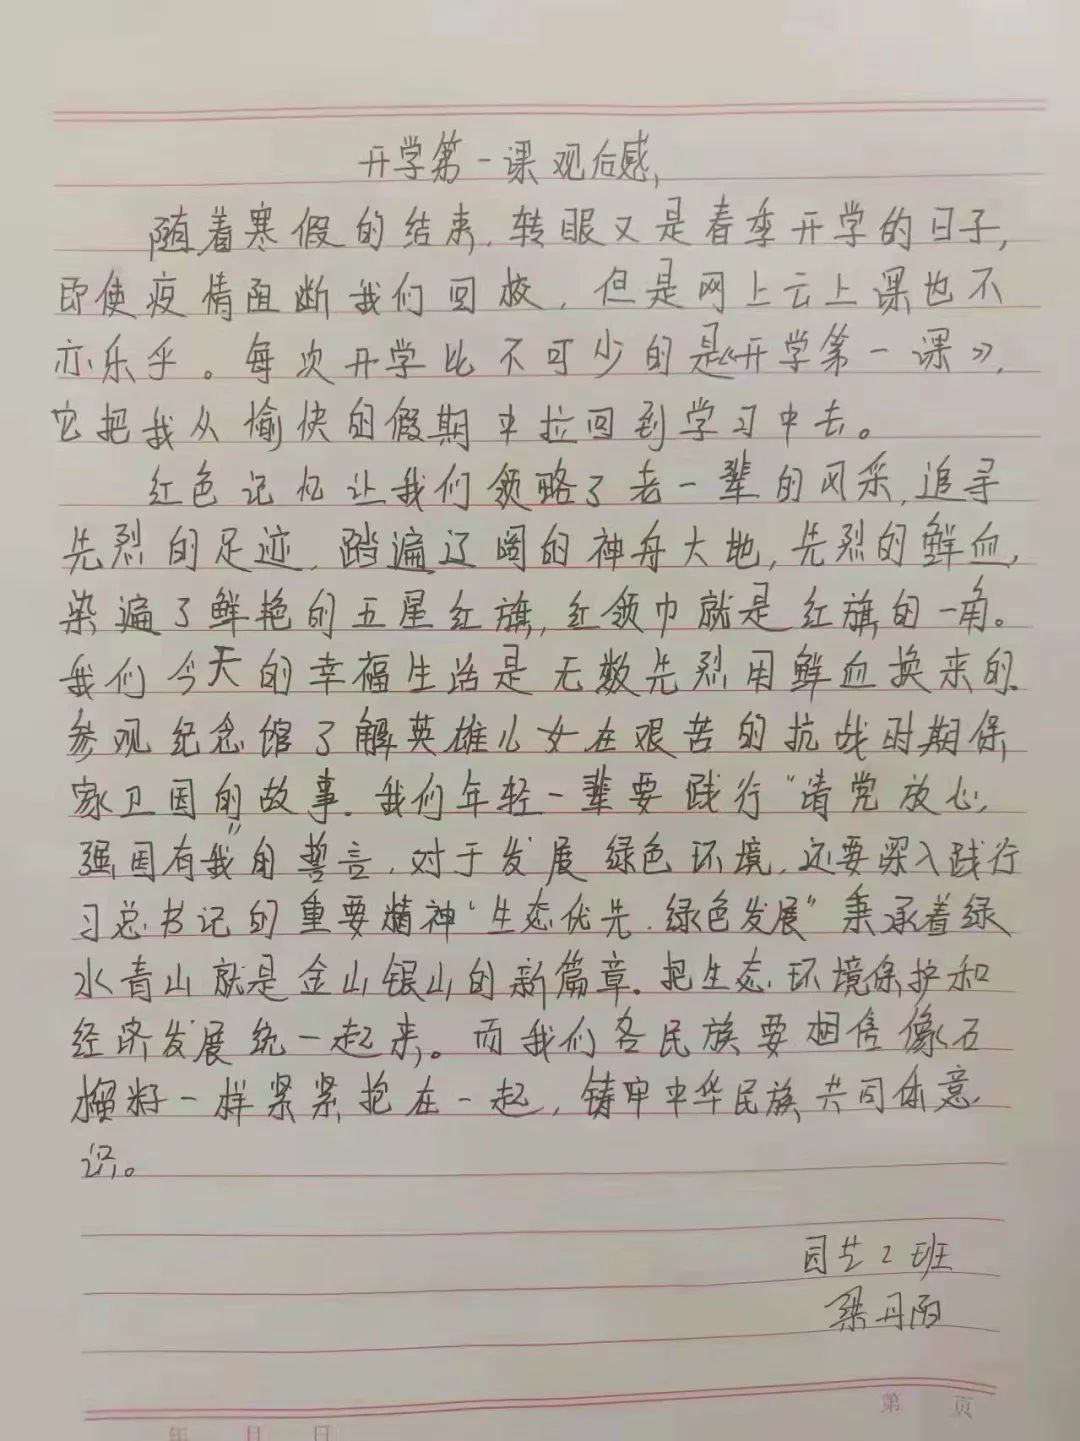 开学第一课观后感
随着寒假的结束,转眼又是春季开学的日子,
即使疫情阻断我们回校,但是网上云上课也不
亦乐乎。每次开学比不可少的是《开学第一课》,
它把我从愉快的假期中拉回到学习中去。
红色记忆让我们领略了老一辈的风采,追寻
先烈的足迹,踏遍辽阔的神舟大地,先烈的鲜血,
染遍了鲜艳的五星红旗,红领巾就是红旗的一角。
我们今天的幸福生活是无数先烈用鲜血换来的.
参观纪念馆了解英雄儿女在艰苦的抗战时期保
家卫国的故事.我们年轻一辈要践行“请党放心,
强国有我”的誓言,对于发展绿色环境,还要深入践行
习总书记的重要精神“生态优先.绿色发展”秉承着绿
水青山就是金山银山的新篇章.把生态环境保护和
经济发展统一起来。而我们各民族要相信像石
榴籽一样紧紧抱在一起,铸牢中华民族共同体意
识。
园艺2班
梁丹阳
第 页
年 月 日